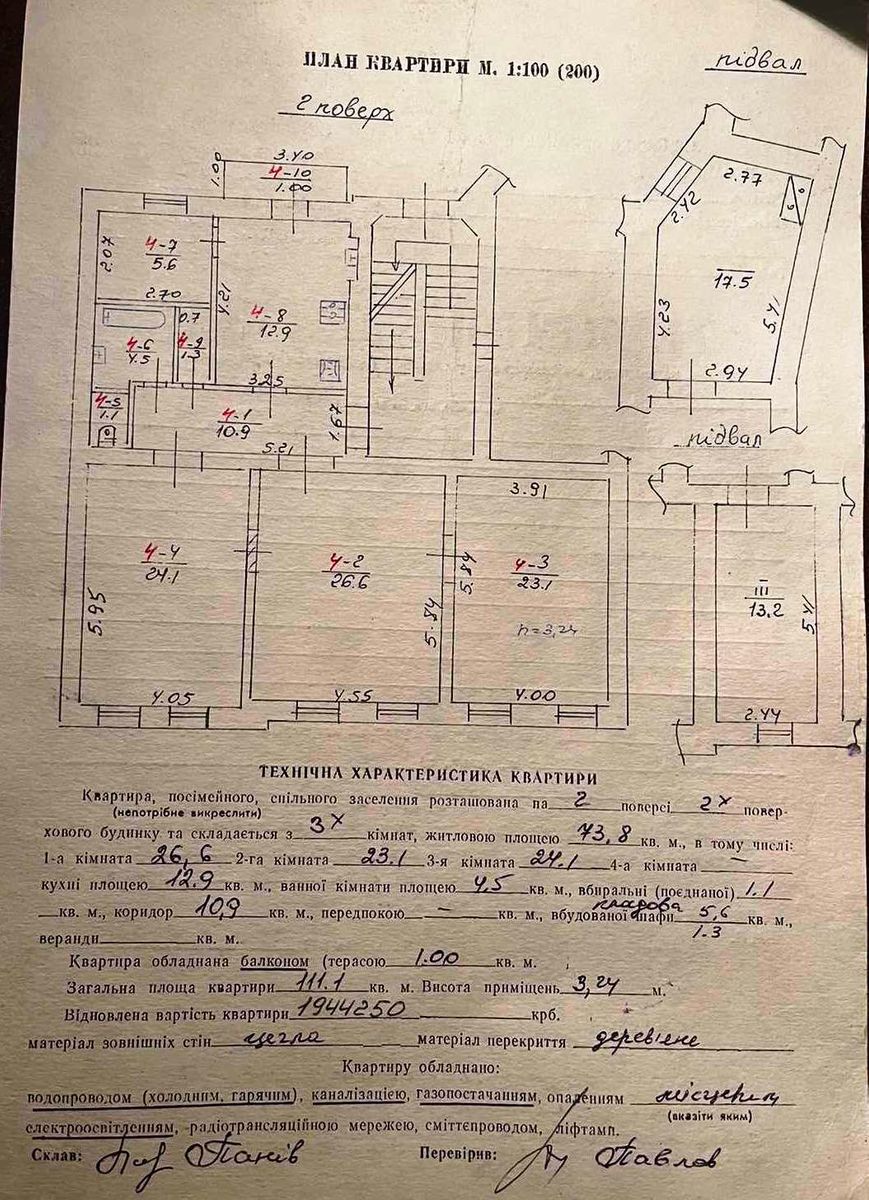 ПЛАН КВАРТИРИ М. 1:100 (200)
підвал
2 поверх
3.40
1.00
4-10
1.00
2.77
2.42
17.5
4.23
5.41
2.94
4-7
5.6
2.07
2.70
4.21
4-8
12.9
3.25
0.7
4-9
1.3
4-6
4.5
4-5
1.1
4-1
10.9
5.21
1.67
підвал
3.91
4-4
24.1
4-2
26.6
5.84
4-3
23.1
h=3,24
5.95
5.84
4.05
4.55
4.00
III
13.2
5.41
2.44
ТЕХНІЧНА ХАРАКТЕРИСТИКА КВАРТИРИ
Квартира, посімейного, спільного заселення розташована на 2 поверсі 2х повер-
(непотрібне викреслити)
хового будинку та складається з 3х кімнат, житловою площею 73,8 кв. м., в тому числі:
1-а кімната 26,6 2-га кімната 23.1 3-я кімната 24.1 4-а кімната —
кухні площею 12.9 кв. м., ванної кімнати площею 4,5 кв. м., вбиральні (поєднаної) 1.1
кладова
кв. м., коридор 10,9 кв. м., передпокою — кв. м., вбудованої шафи 5,6 кв. м.,
1.3
веранди кв. м.
Квартира обладнана балконом (терасою 1.00 кв. м.
Загальна площа квартири 111.1 кв. м. Висота приміщень 3,24 м.
Відновлена вартість квартири 1944250 крб.
матеріал зовнішніх стін цегла матеріал перекриття дерев'яне
Квартиру обладнано:
водопроводом (холодним, гарячим), каналізацією, газопостачанням, опаленням місцевим
(вказіти яким)
електроосвітленням, -радіотрансляційною мережею, сміттєпроводом, ліфтамп.
Склав: Панів Перевірив: Павлов